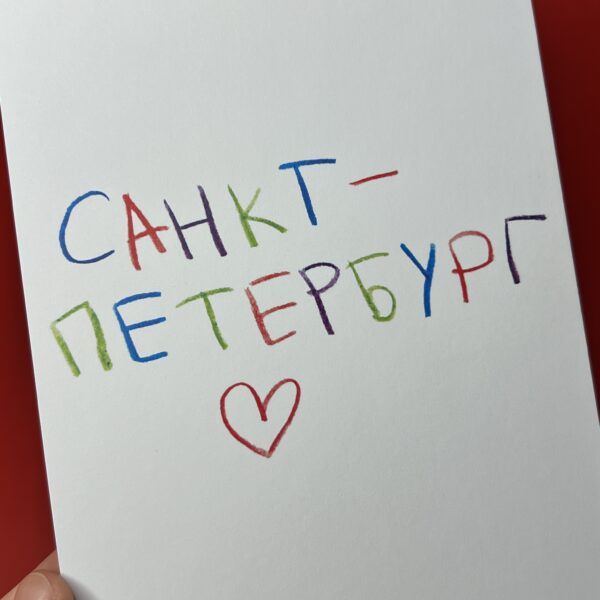 САНКТ-
ПЕТЕРБУРГ